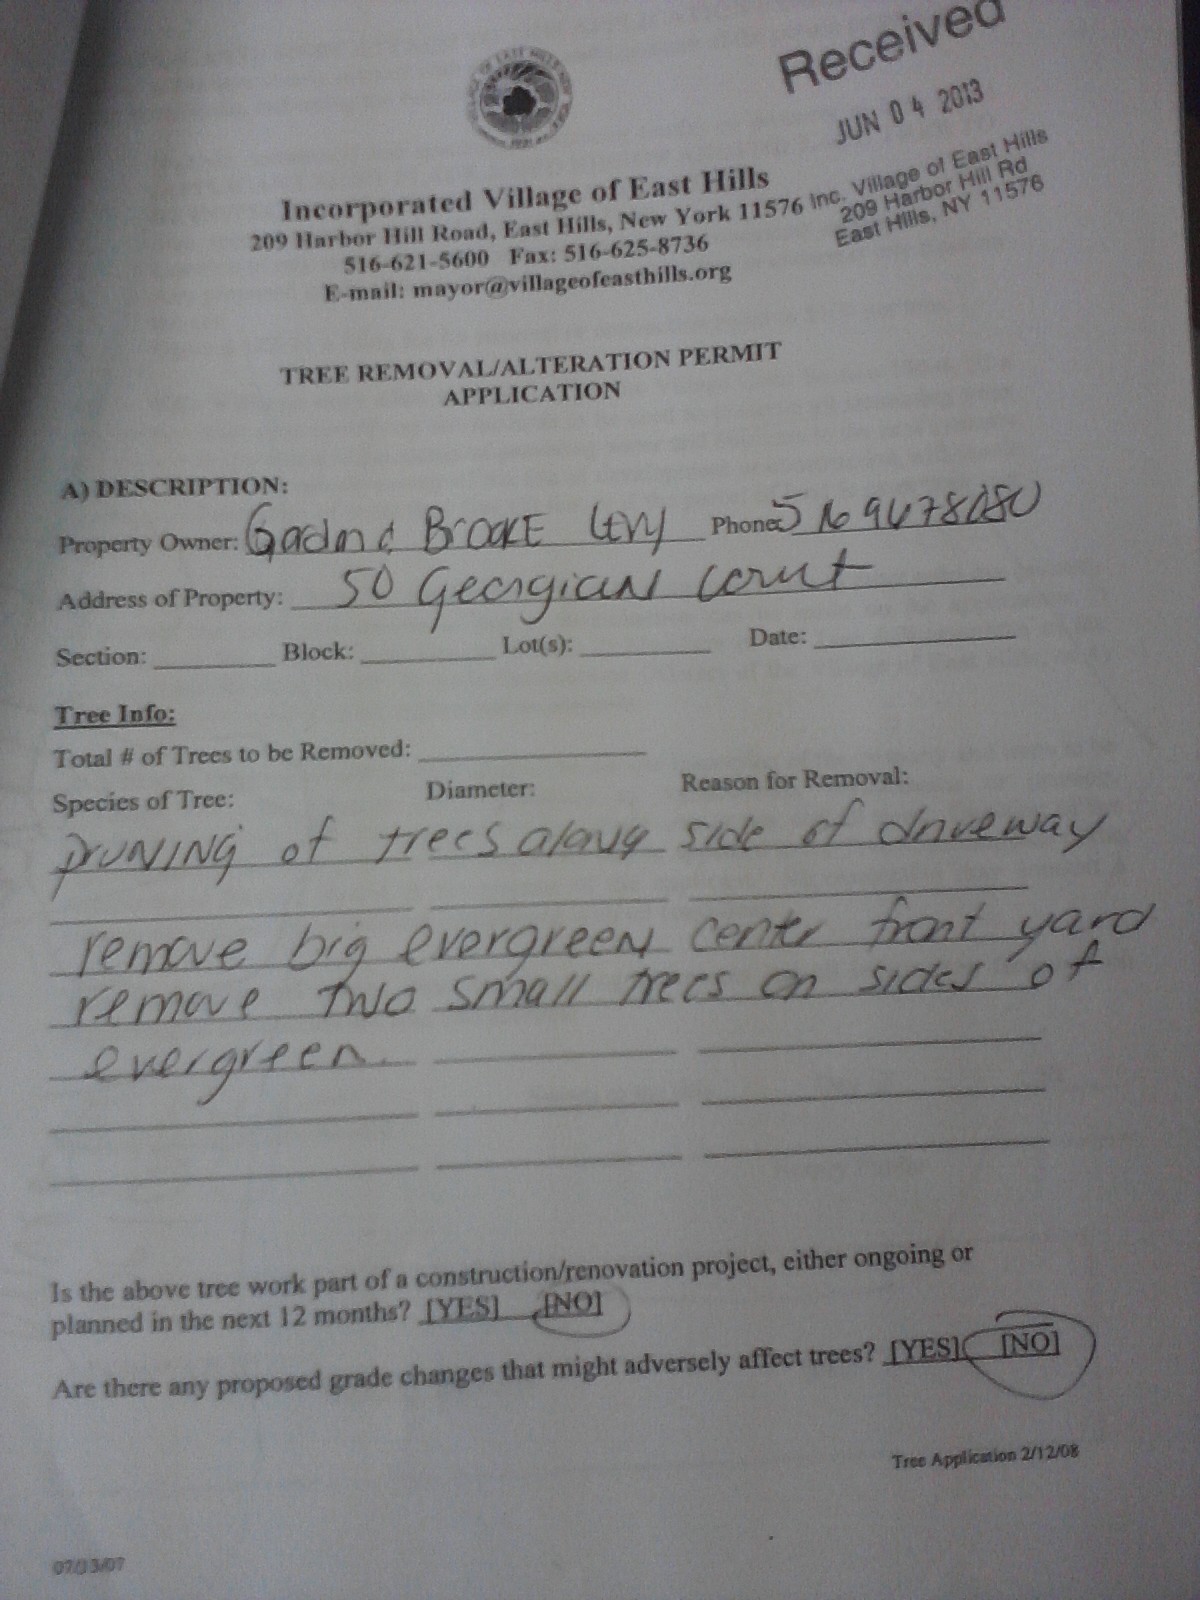 Received
JUN 04 2013
Inc. Village of East Hills
209 Harbor Hill Rd
East Hills, NY 11576
Incorporated Village of East Hills
209 Harbor Hill Road, East Hills, New York 11576
516-621-5600 Fax: 516-625-8736
E-mail: mayor@villageofeasthills.org
TREE REMOVAL/ALTERATION PERMIT
APPLICATION
A) DESCRIPTION:
Property Owner: BROOKE Levy Phone:
Address of Property: 50 Georgian Court
Section: Block: Lot(s): Date:
Tree Info:
Total # of Trees to be Removed:
Species of Tree: Diameter: Reason for Removal:
PRUNING of trees along side of driveway
remove big evergreen center front yard
remove two small trees on sides of
evergreen.
Is the above tree work part of a construction/renovation project, either ongoing or
planned in the next 12 months? [YES] [NO]
Are there any proposed grade changes that might adversely affect trees? [YES] [NO]
Tree Application 2/12/08